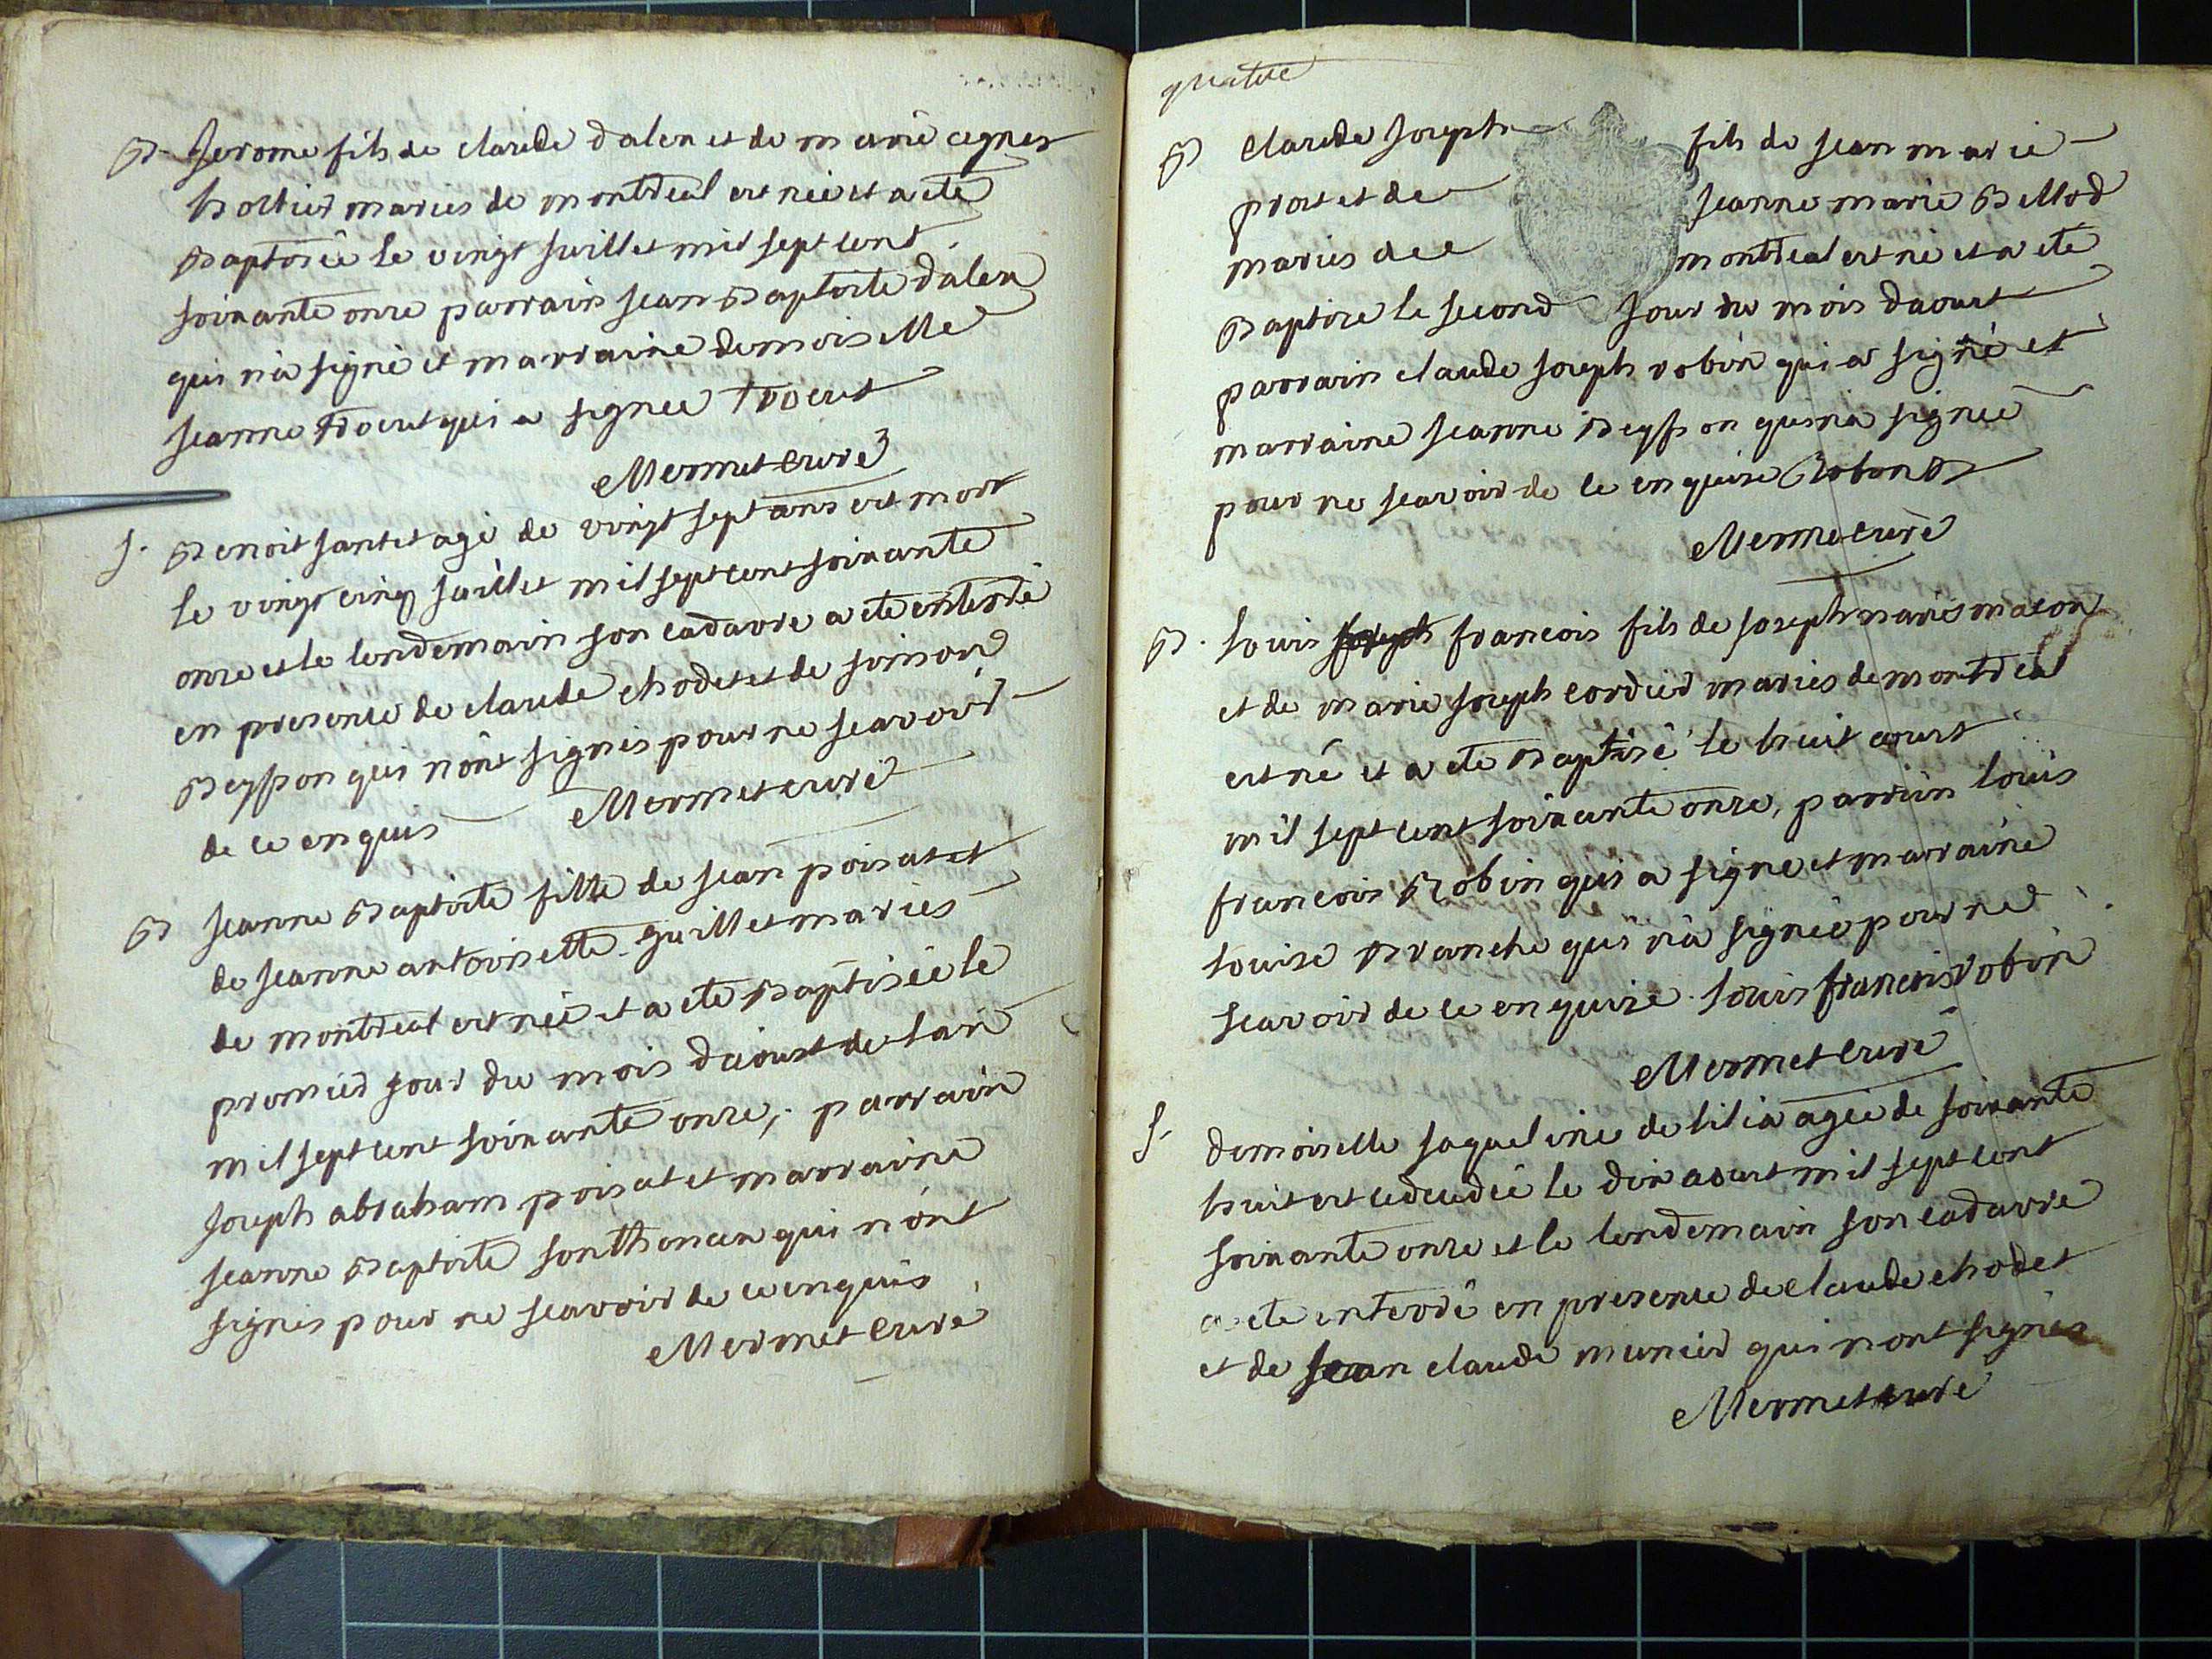 B. Jerome fils de claude dalen et de marie agnes
holtier maries de montreal est née et a eté
Baptisée le vingt juillet mil sept cent
soixante onze parrain jean Baptiste dalen
qui n'a signé et marraine demoiselle
jeanne trocut qui a signée trocut
Mermet curé
S. Benoit santet agé de vingt sept ans est mort
le vingt cinq juillet mil sept cent soixante
onze et le lendemain son cadavre a eté enterré
en presence de claude chodet et de simon
Beysson qui n'ont signés pour ne scavoir
de ce enquis Mermet curé
B jeanne Baptiste fille de jean poisat et
de jeanne antoinette juillet maries
de montreal est née et a eté Baptisée le
premier jour du mois d'aoust de l'an
mil sept cent soixante onze, parrain
joseph abraham poisat et marraine
jeanne Baptiste sonthonax qui n'ont
signés pour ne scavoir de ce enquis
Mermet curé
quatre
B claude joseph fils de jean marie
prost et de jeanne marie Billod
maries de montreal est né et a eté
Baptise le second jour du mois daoust
parrain claude joseph robin qui a signé et
marraine jeanne Beysson qui n'a signée
pour ne scavoir de ce enquise Robin
Mermet curé
B. Louis joseph francois fils de joseph marie macon
et de marie joseph cordier maries de montreal
est né et a eté Baptisé le huit aoust
mil sept cent soixante onze, parrain louis
francois Robin qui a signe et marraine
louise Branche qui n'a signée pour ne
scavoir de ce enquise. Louis francois robin
Mermet curé
S. demoiselle jaqueline de lilia agée de soixante
huit est decedée le dix aoust mil sept cent
soixante onze et le lendemain son cadavre
a eté enterré en presence de claude chodet
et de jean claude munier qui n'ont signés
Mermet curé